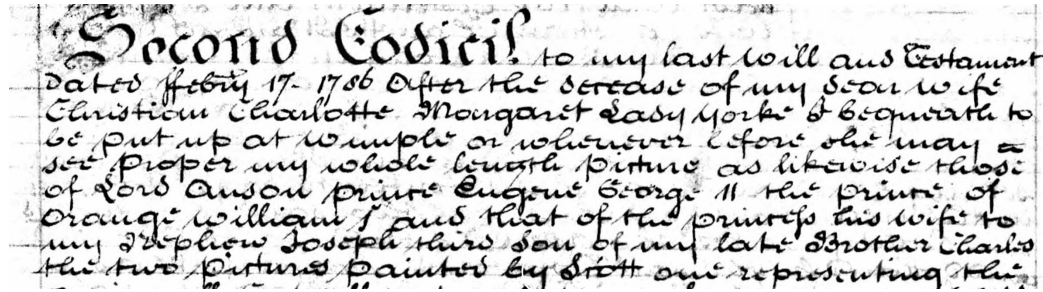 Second Codicil to my last Will and Testament
Dated ffebry 17. 1786 After the decease of my Dear wife
Christian Charlotte Margaret Lady Yorke I bequeath to
be put up at Wimple or whenever before she may
see proper my whole length Picture as likewise those
of Lord Anson prince Eugene George II the prince of
Orange William and that of the princess his wife to
my Nephew Joseph third Son of my late Brother Charles
the two Pictures painted by Scott one representing the